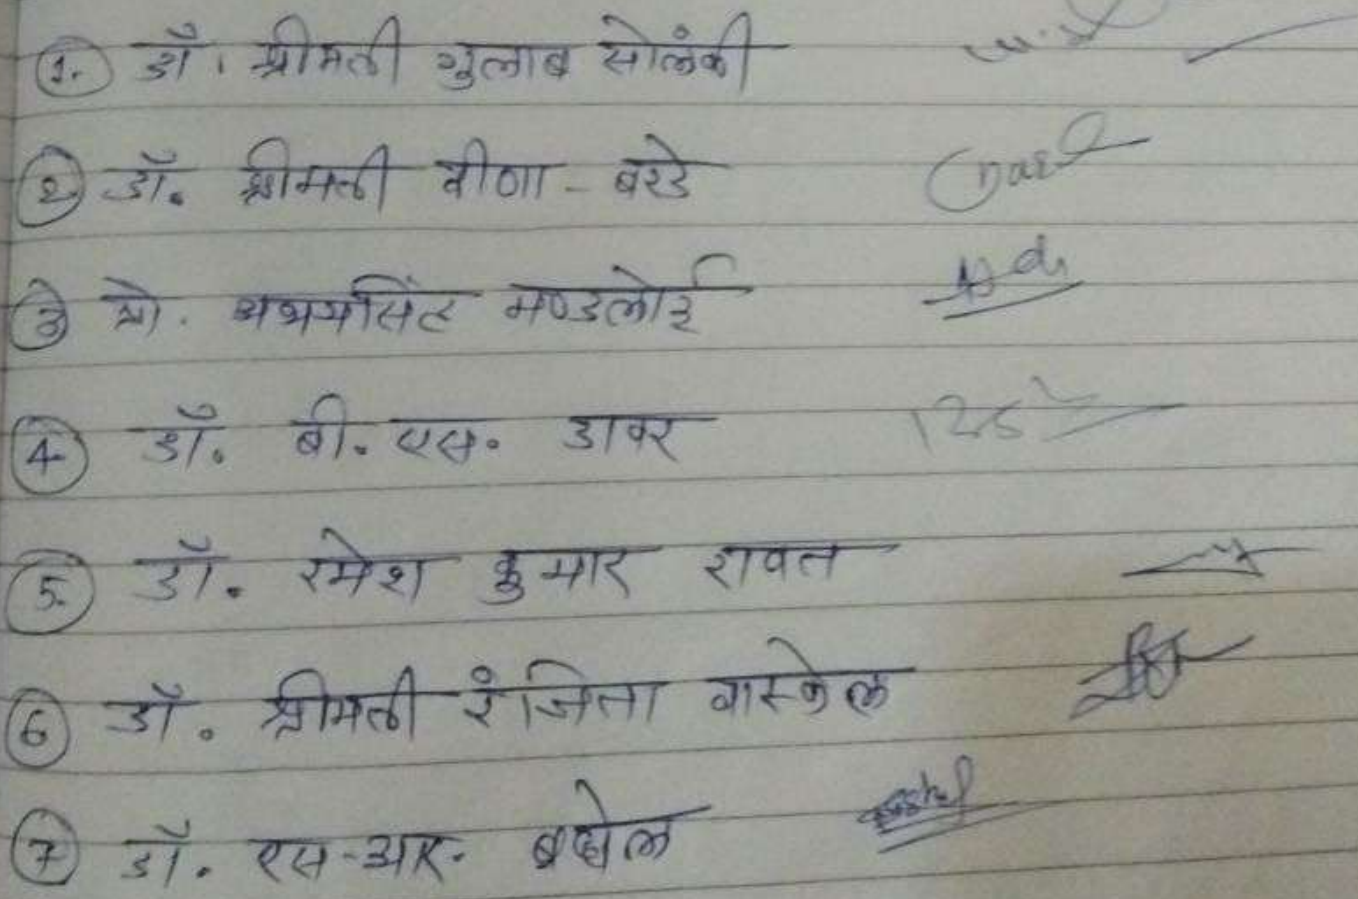 1. डॉ. श्रीमती गुलाब सोलंकी
2. डॉ. श्रीमती वीणा - बरडे
3 प्रो. अभयसिंह मण्डलोई
4. डॉ. बी. एस. डावर
5. डॉ. रमेश कुमार रावत
6 डॉ. श्रीमती रंजिता वास्केल
7 डॉ. एस-आर. बघेल